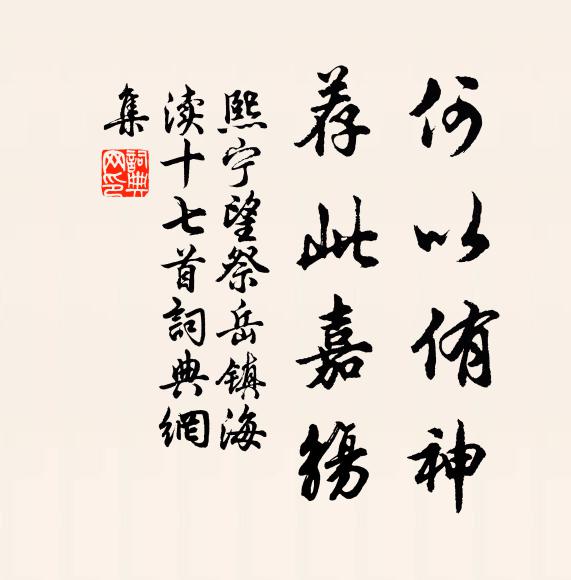 何以侑神
荐此嘉觞
熙宁望祭岳镇海
渎十七首詞典網
集
詞典网印